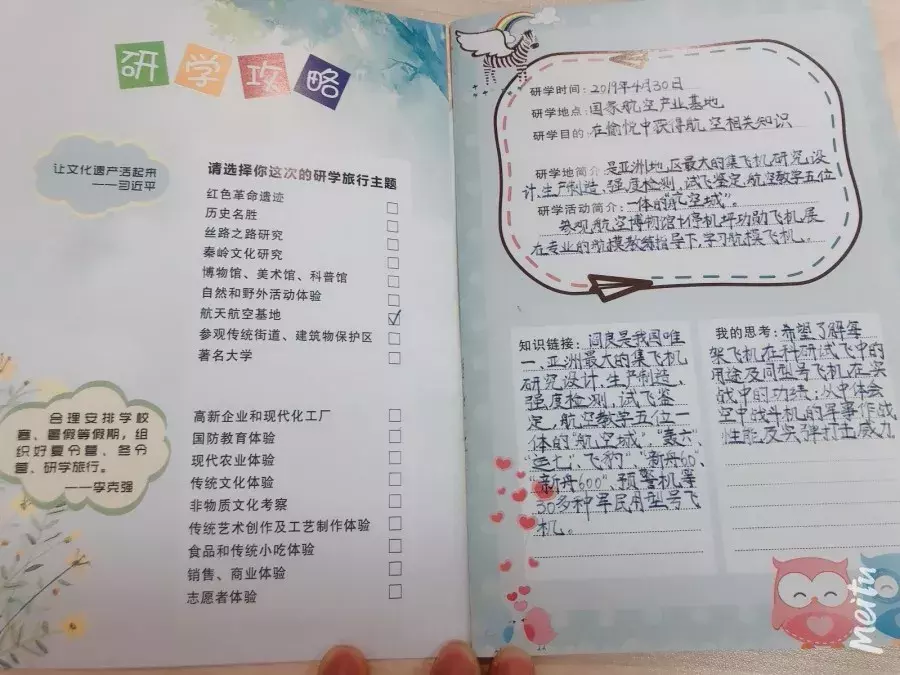 研学攻略
让文化遗产活起来
——习近平
请选择你这次的研学旅行主题
红色革命遗迹
历史名胜
丝路之路研究
秦岭文化研究
博物馆、美术馆、科普馆
自然和野外活动体验
航天航空基地
参观传统街道、建筑物保护区
著名大学
合理安排学校
寒、暑假等假期，组
织好夏令营、冬令
营、研学旅行。
——李克强
高新企业和现代化工厂
国防教育体验
现代农业体验
传统文化体验
非物质文化考察
传统艺术创作及工艺制作体验
食品和传统小吃体验
销售、商业体验
志愿者体验
研学时间：2019年4月30日
研学地点：国家航空产业基地
研学目的：在愉悦中获得航空相关知识
研学地简介：是亚洲地区最大的集飞机研究设
计、生产制造、强度检测、试飞鉴定、航空教学五位
研学活动简介：一体的“航空城”。
参观航空博物馆、停机坪功勋飞机展
在专业的航模教练指导下，学习航模飞机。
知识链接：阎良是我国唯
一、亚洲最大的集飞机
研究设计、生产制造、
强度检测，试飞鉴
定，航空教学五位一
体的“航空城”，轰六”
“运七”、飞豹”“新舟60”、
“新舟600”、预警机等
30多种军民用型号飞
机。
我的思考：希望了解每
架飞机在科研试飞中的
用途及同型号飞机在实
战中的功绩；从中体会
空中战斗机的军事作战
性能及实弹打击威力
meitu